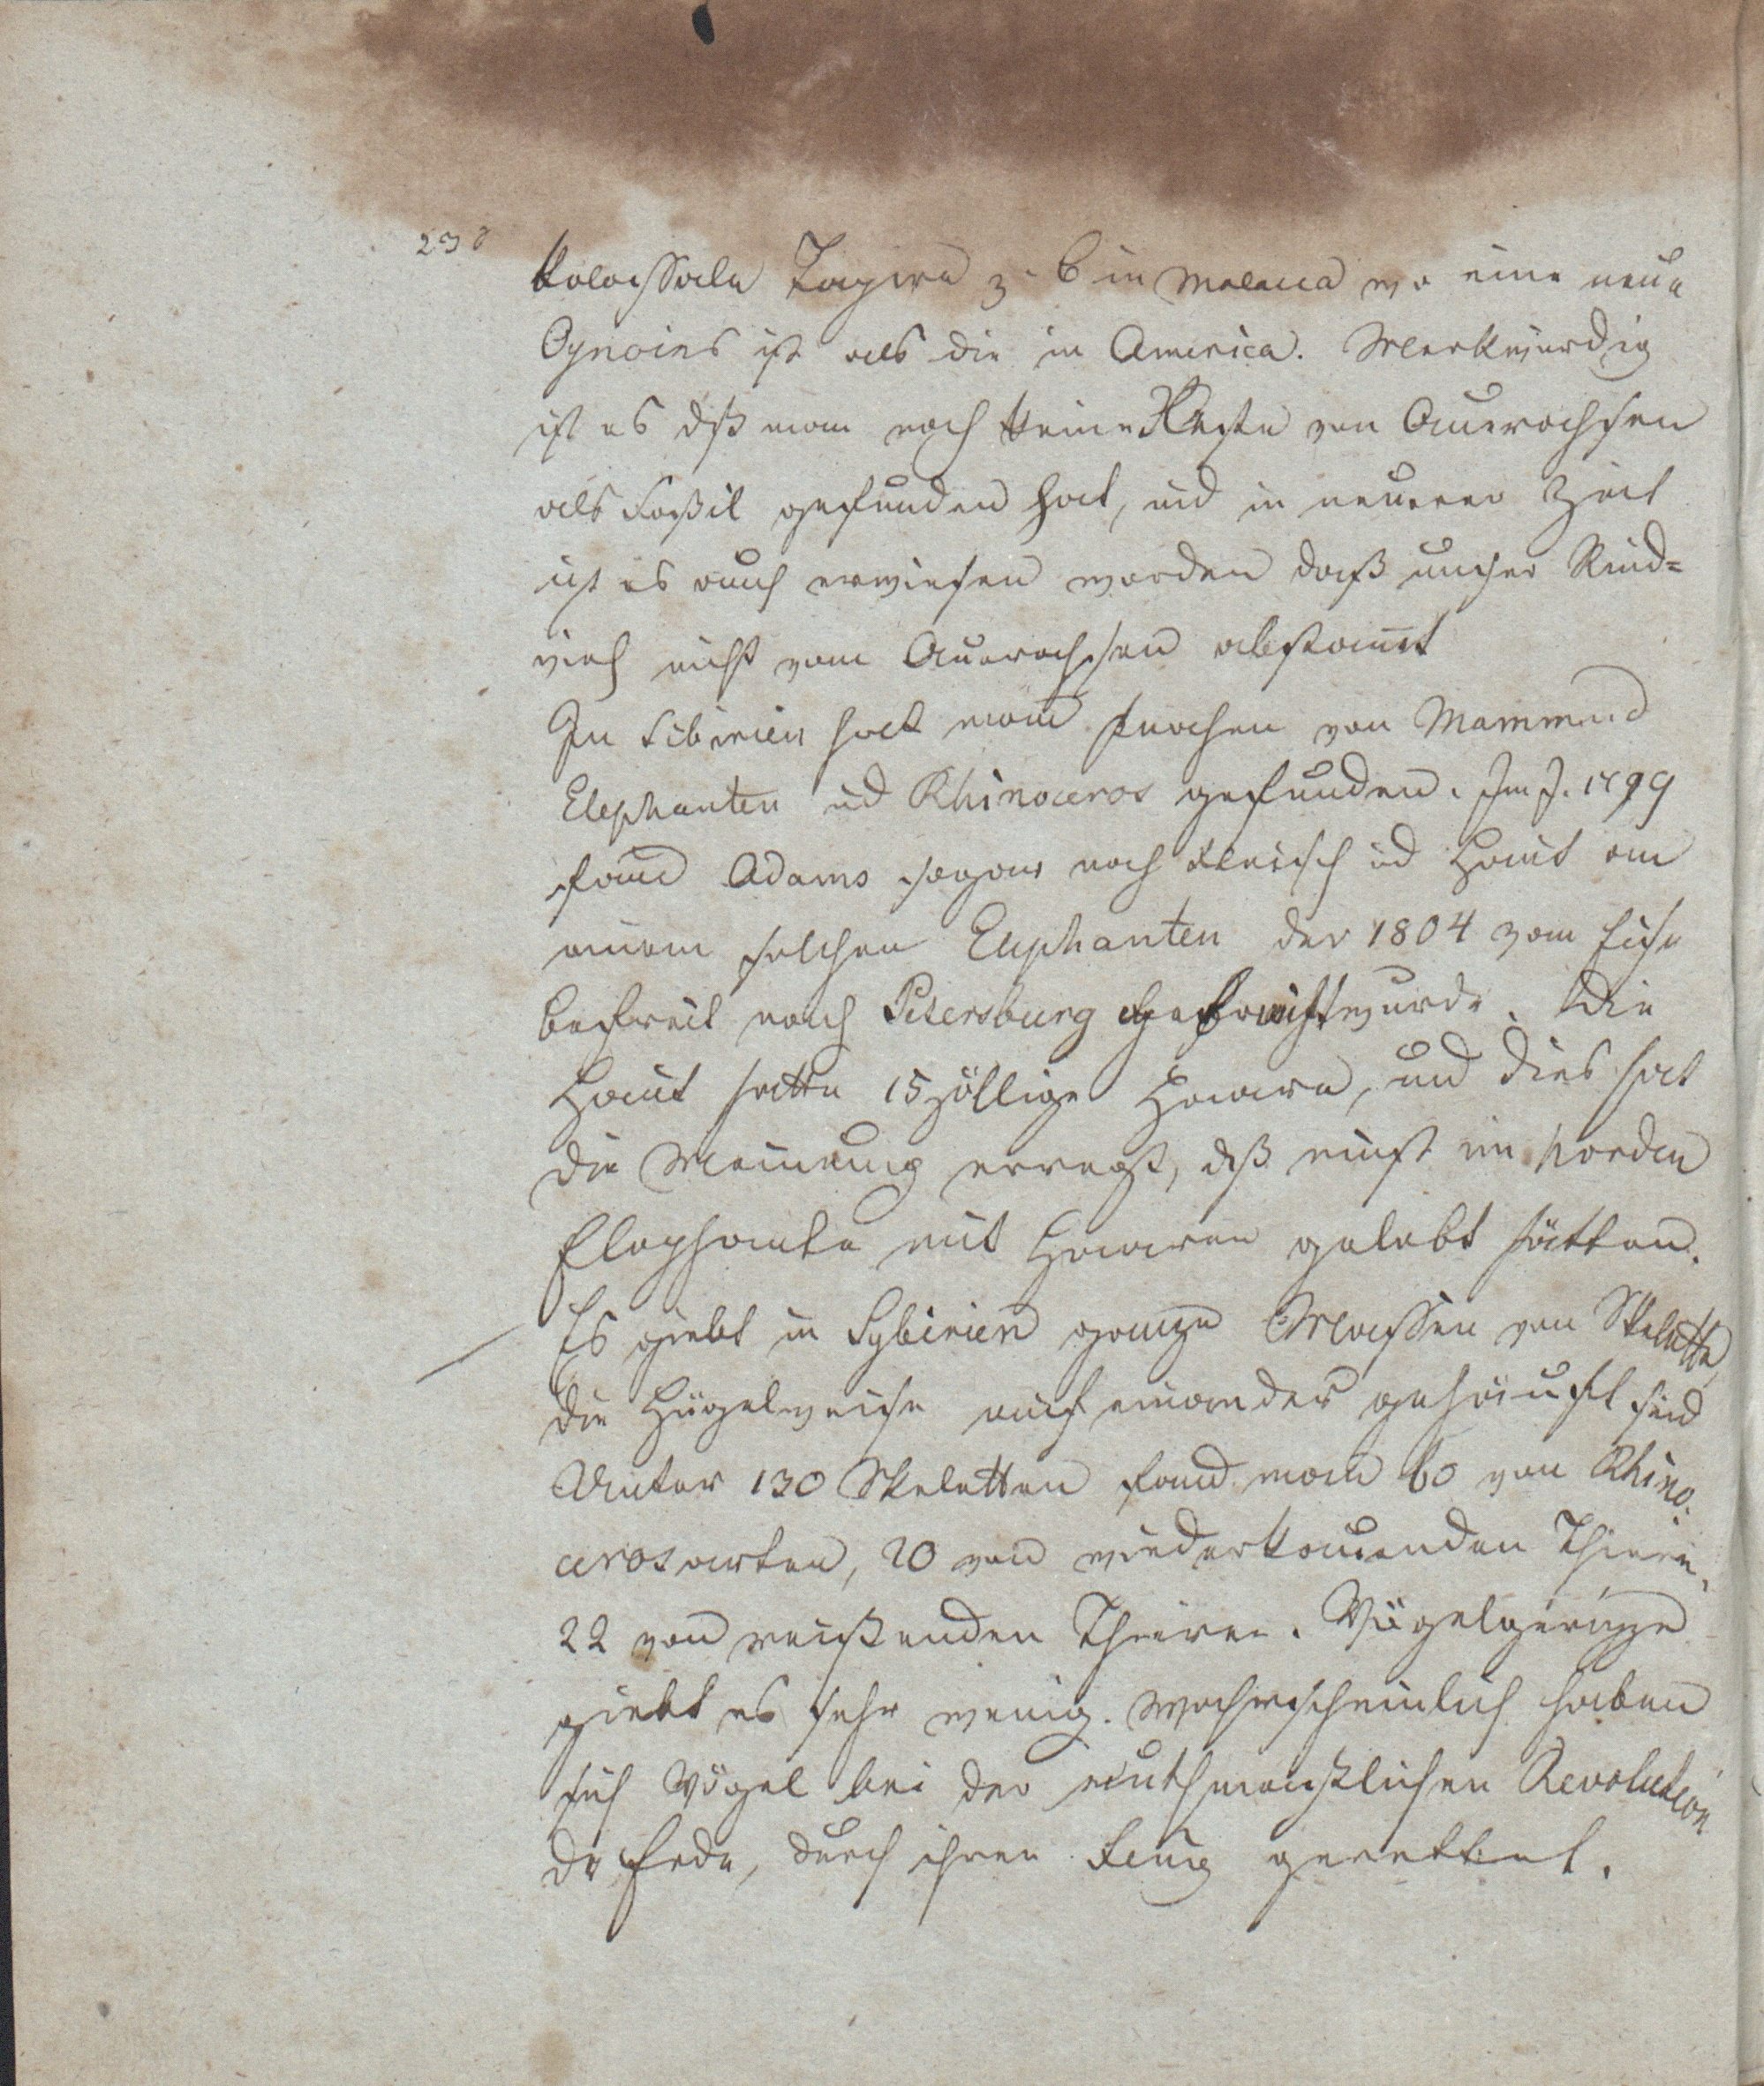 230
kolossale Tapire z. B in Malacca wo eine neue
Species ist als die in America. Merkwürdig
ist es dß man noch keine Reste von Auerochsen
als Foßil gefunden hat, und in neuerer Zeit
ist es auch erwiesen worden daß unser Rind=
vieh nicht vom Auerochsen abstamt
In Sibirien hat man Knochen von Mammud
Elephanten ud Rhinoceros gefunden. Im J. 1799
fand Adams sogar noch Fleisch ud Haut an
einem solchen Elephanten der 1804 vom Eise
befreit nach Petersburg gebracht wurde. Die
Haut hatte 15zöllige Haare, und dies hat
die Meinung erregt, dß einst im Norden
Elephante mit Haaren gelebt hätten.
Es giebt in Sybirien ganze Massen von Skelette
die Hügelweise auf einander gehäuft sind
Unter 130 Skeletten fand man 60 von Rhino.
cerosarten, 20 von wiederkauenden Thieren,
22 von reißenden Thieren. Vögelgerippe
giebt es sehr wenig. Wahrscheinlich haben
sich Vögel bei der muthmaaßlichen Revolution
der Erde, durch ihren Flug gerettet.